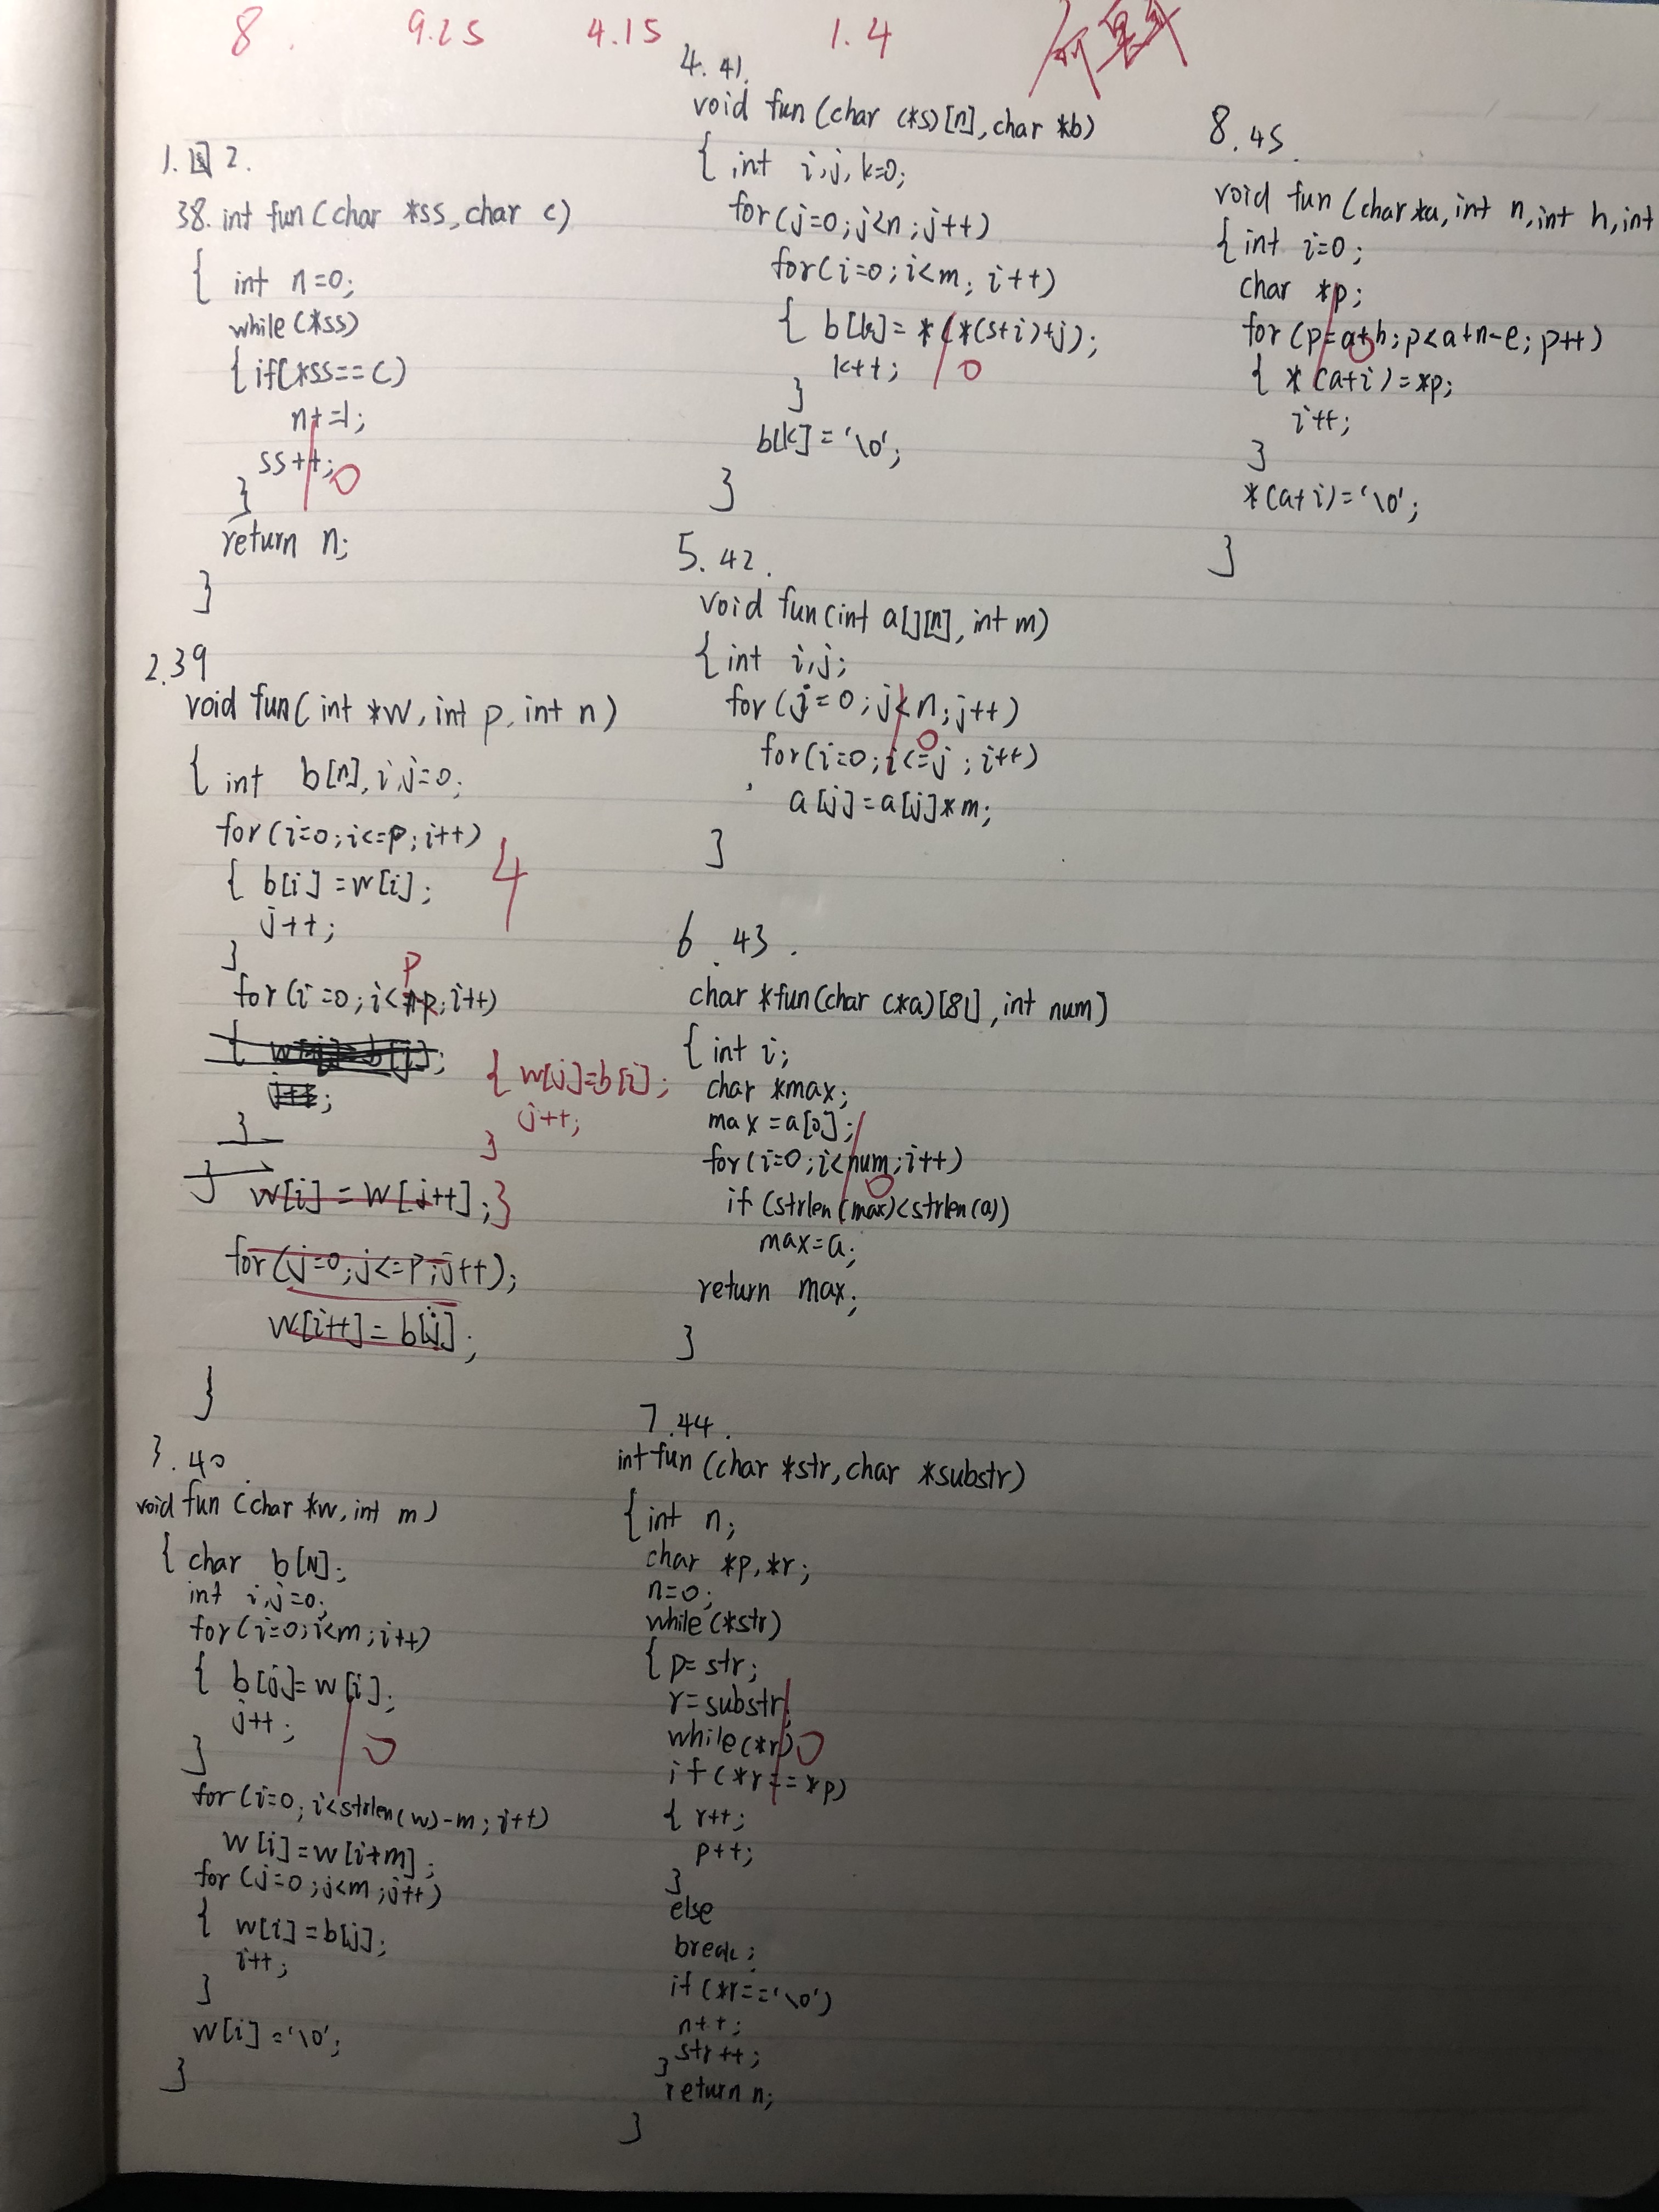 8. 9.25 4.15 1.4
1. 2.
38. int fun(char *ss, char c)
{ int n=0;
while(*ss)
{if(*ss==c)
n+=1;
ss++;
}
0
return n;
}
2.39
void fun(int *w, int p, int n)
{ int b[n], i, j=0;
for(i=0; i<=p; i++)
{ b[i]=w[i];
j++;
}
4
p
for(i=0; i<np; i++)
{ w[j]=b[i];
j++;
}
}
}
w[i]=w[j++];}
for(j=0; j<=p; j++);
w[i++]=b[j];
}
3.40
void fun(char *w, int m)
{ char b[N];
int i, j=0;
for(i=0; i<m; i++)
{ b[j]=w[i];
j++;
}
0
for(i=0; i<strlen(w)-m; i++)
w[i]=w[i+m];
for(j=0; j<m; j++)
{ w[i]=b[j];
i++;
}
w[i]='\0';
}
4. 41.
void fun(char (*s)[n], char *b)
{ int i, j, k=0;
for(j=0; j<n; j++)
for(i=0; i<m; i++)
{ b[k]=*(*(s+i)+j);
k++;
}
0
b[k]='\0';
}
5. 42.
void fun(int a[][n], int m)
{int i, j;
for(j=0; j<n; j++)
0
for(i=0; i<=j; i++)
a[j]=a[j]*m;
}
6. 43.
char *fun(char (*a)[81], int num)
{int i;
char *max;
max=a[0];
for(i=0; i<num; i++)
0
if(strlen(max)<strlen(a))
max=a;
return max;
}
7.44.
int fun(char *str, char *substr)
{int n;
char *p, *r;
n=0;
while(*str)
{p=str;
r=substr;
while(*r)
0
if(*r==*p)
{ r++;
p++;
}
else
break;
if(*r=='\0')
n++;
str++;
}
return n;
}
8.45.
void fun(char *a, int n, int h, int
{int i=0;
char *p;
for(p=a+h; p<a+n-e; p++)
0
{ *(a+i)=*p;
i++;
}
*(a+i)='\0';
}